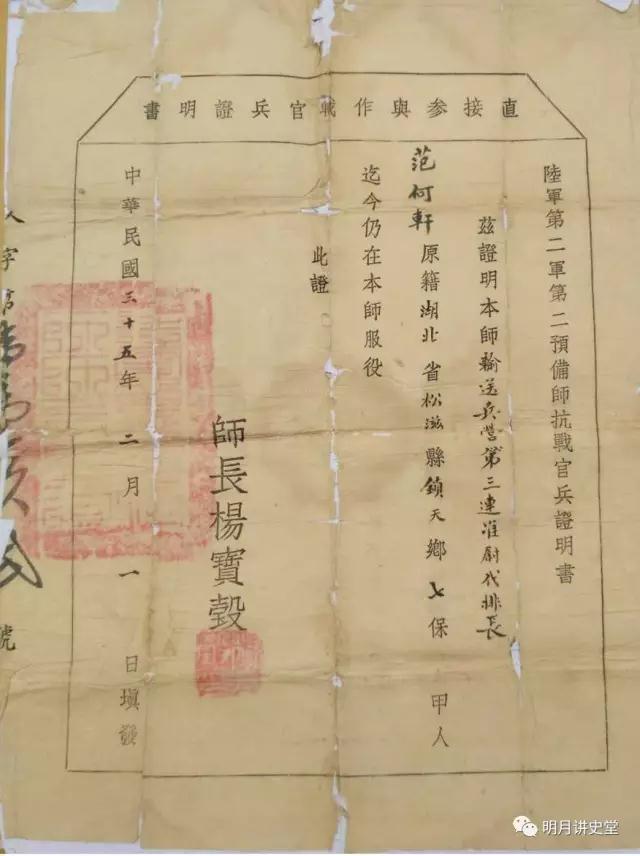 直接參與作戰官兵證明書
陸軍第二軍第二預備師抗戰官兵證明書
茲證明本師輸送兵營第三連准尉代排長
范何軒原籍湖北省松滋縣鎖天鄉七保 甲人
迄今仍在本師服役
此證
師長楊寶瑴
中華民國三十五年二月一日填發
字第
號
明月讲史堂